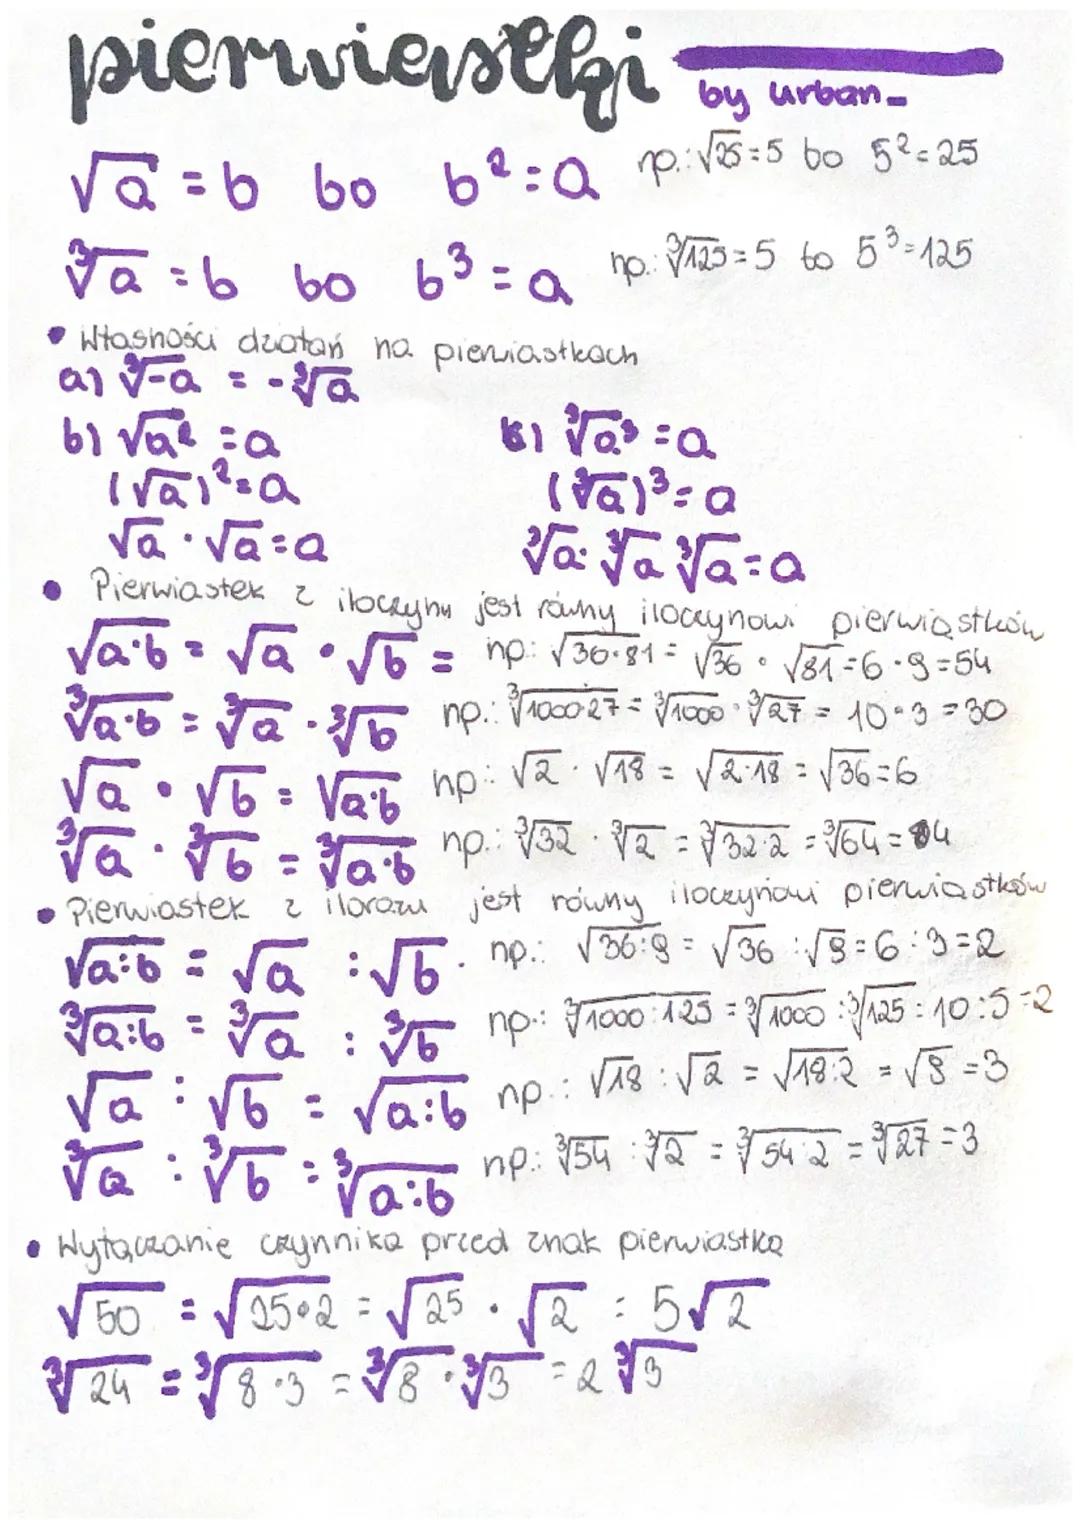 pierwiastki
by urban_
√a = b bo b² = a np.: √25 = 5 bo 5² = 25
∛a = b bo b³ = a np.: ∛125 = 5 bo 5³ = 125
• Własności działań na pierwiastkach
a) ∛-a = -∛a
b) √a² = a
(√a)² = a
√a · √a = a
∛a³ = a
(∛a)³ = a
∛a · ∛a ∛a = a
• Pierwiastek z iloczynu jest równy iloczynowi pierwiastków
√a·b = √a · √b = np.: √36·81 = √36 · √81 = 6 · 9 = 54
∛a·b = ∛a · ∛b np.: ∛1000·27 = ∛1000 · ∛27 = 10 · 3 = 30
√a · √b = √a·b np.: √2 · √18 = √2·18 = √36 = 6
∛a · ∛b = ∛a·b np.: ∛32 · ∛2 = ∛32·2 = ∛64 = 4
• Pierwiastek z ilorazu jest równy iloczynowi pierwiastków
√a:b = √a : √b. np.: √36:9 = √36 : √9 = 6 : 3 = 2
∛a:b = ∛a : ∛b np.: ∛1000:125 = ∛1000 : ∛125 = 10 : 5 = 2
√a : √b = √a:b np.: √18 : √2 = √18:2 = √9 = 3
∛a : ∛b = ∛a:b np.: ∛54 : ∛2 = ∛54:2 = ∛27 = 3
• Wyłączanie czynnika przed znak pierwiastka
√50 = √25·2 = √25 · √2 = 5√2
∛24 = ∛8·3 = ∛8 · ∛3 = 2 ∛3